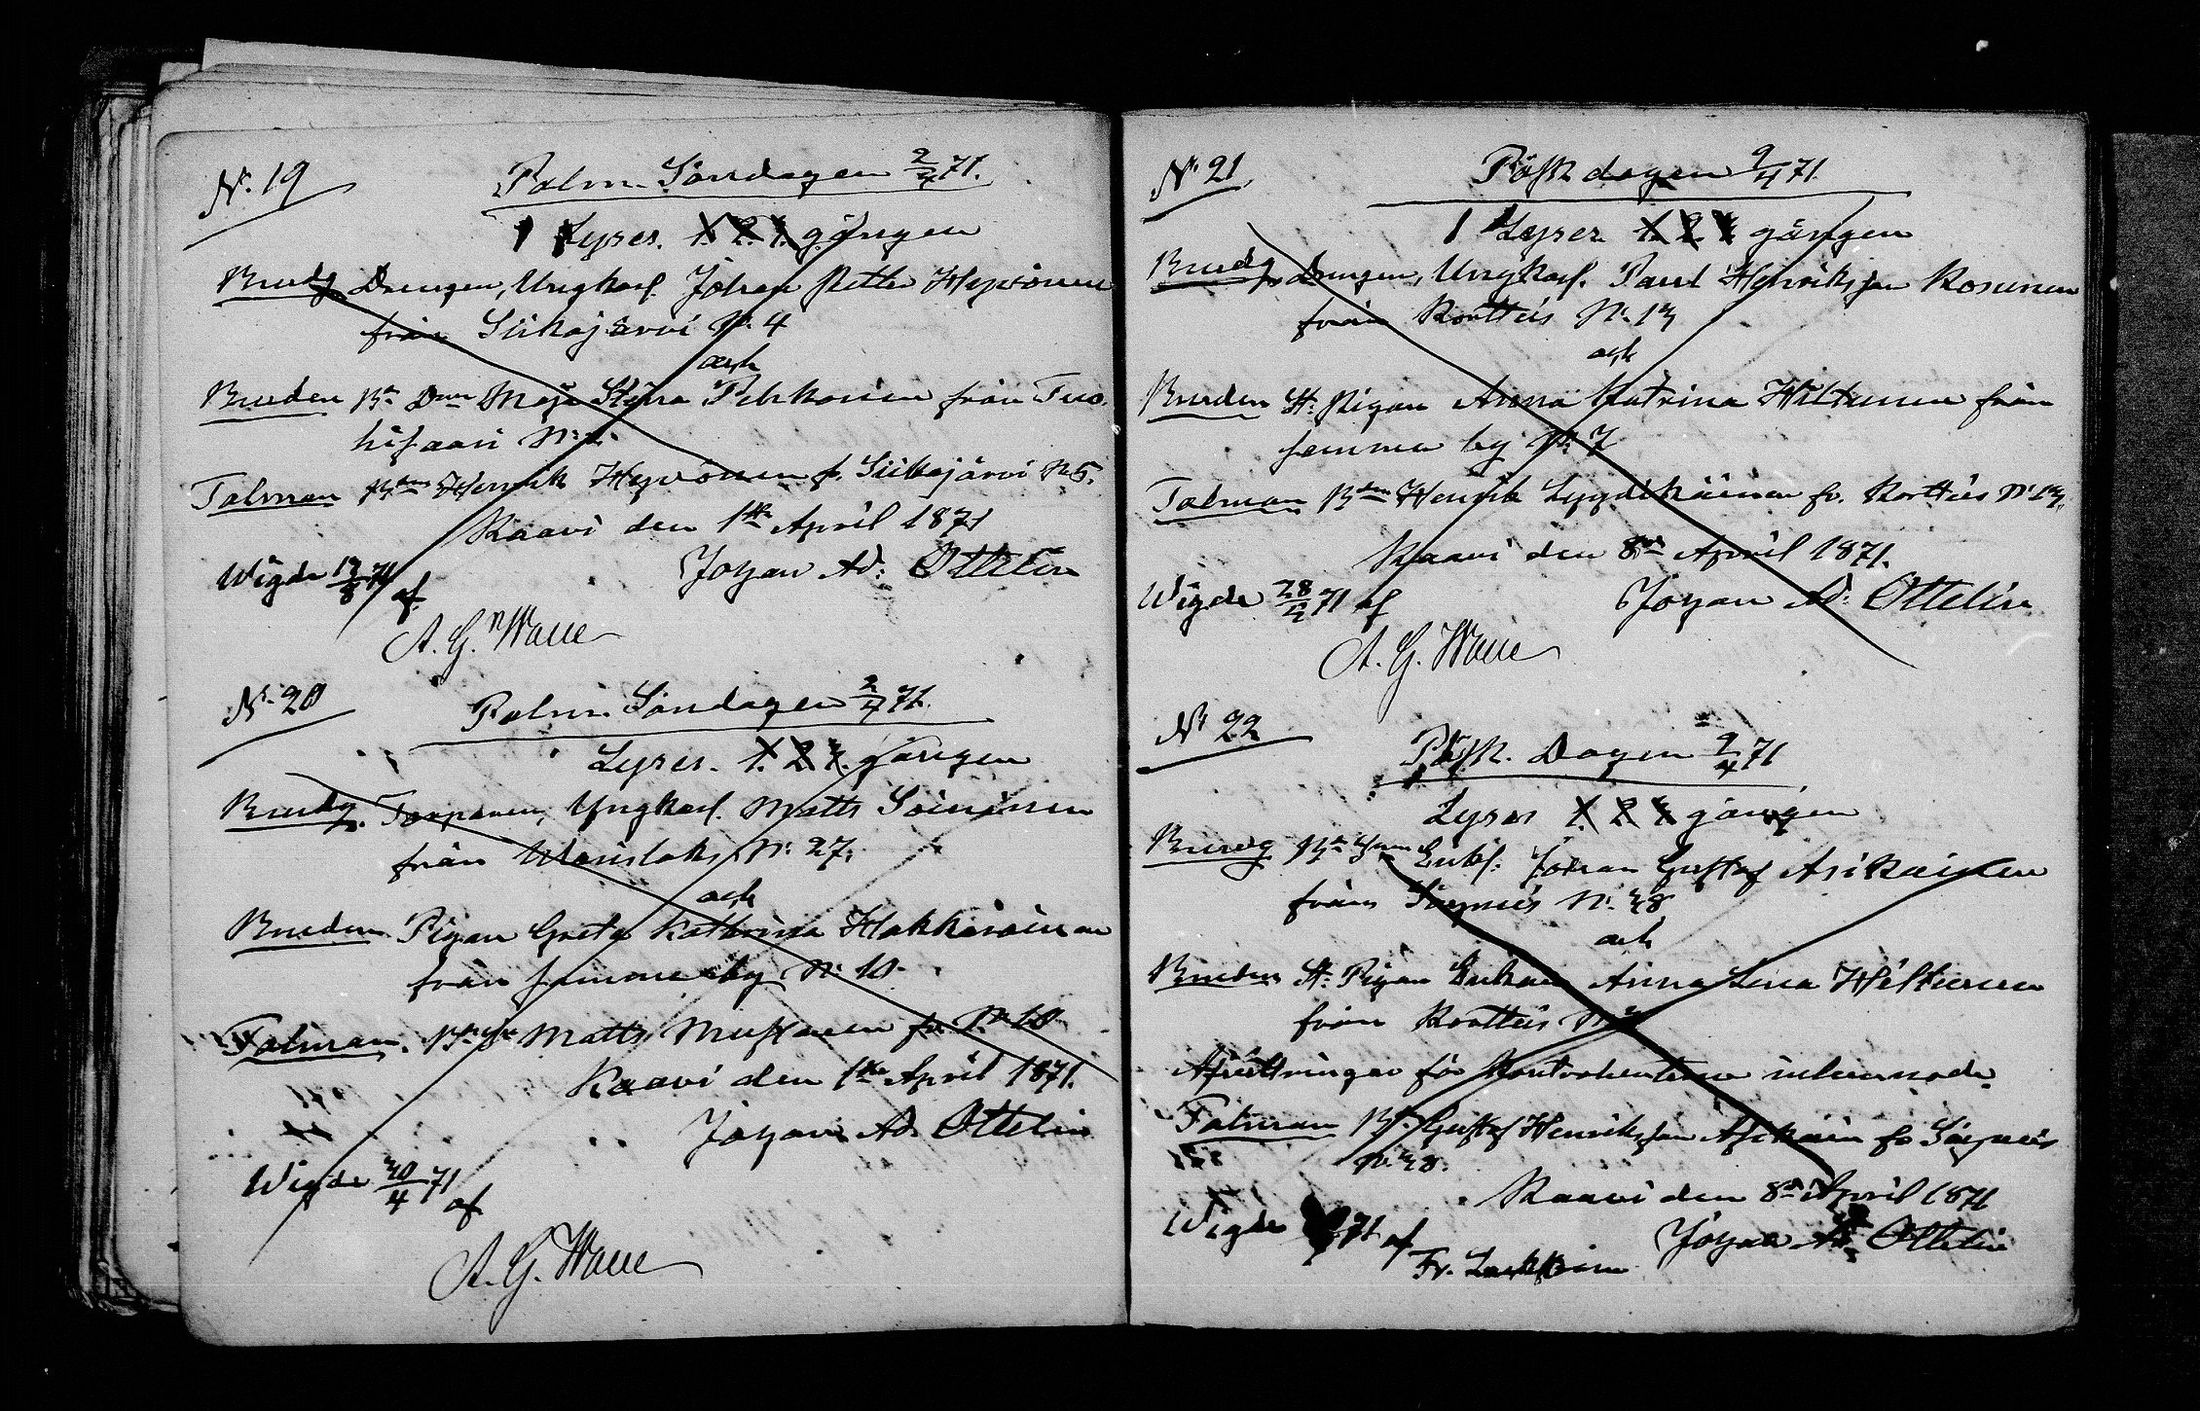 N: 19
Palm Söndagen 2/4 71.
1 Lyses. 1. 2. 3. gången
Brudg Drengen, Ungkarl. Johan Petter Hyvönen
från Siikajärvi N: 4
och
Bruden Bd Dttr Maja Stina Pehkonen från Tuo
hisaari N:
Talman Bden Henrik Hyvönen fr. Siikajärvi N 5.
Kaavi den 1ste April 1871
Johan Ad: Ottelin
Wigde 13/8 71 af
A. G. Walle
N: 20
Palm Söndagen 2/4 71.
Lyses. 1. 2. 3. gången
Brudg. Torparen, Ungkarl. Matts Soininen
från Wavislaks N: 27.
och
Bruden Pigan Greta Kathrina Hakkarainen
från samma by N: 10.
Talman. Matts Mustonen fr. N 10
Kaavi den 1ste April 1871.
Johan Ad. Ottelin
Wigde 30/4 71 af
A. G. Walle
N: 21
Påsk dagen 9/4 71
1 Lyses 1. 2. 3 gången
Brudg Drengen, Ungkarl. Paul Henriksson Kosunen
från Korttis N: 13
och
Bruden H: Pigan Anna Katrina Hiltunen från
samma by N: 7
Talman Bden Henrik Lyydikäinen fr. Korttis N: 13.
Kaavi den 8de April 1871.
Johan Ad: Ottelin
Wigde 28/4 71 af
A. G. Walle
N: 22
Påsk. Dagen 9/4 71
Lyses 1. 2. 3 gången
Brudg Enkl: Johan Gustaf Asikainen
från Säynis N: 38
och
Bruden H: Pigan Enkan Anna Lisa Hiltunen
från Korttis N:
Afvittringar för Kontrahenterna inlemnade.
Talman B. Gustaf Henriksson Asikain fr Säynis
N: 38.
Kaavi den 8de April 1871
Johan Ad: Ottelin
Wigde 71 af